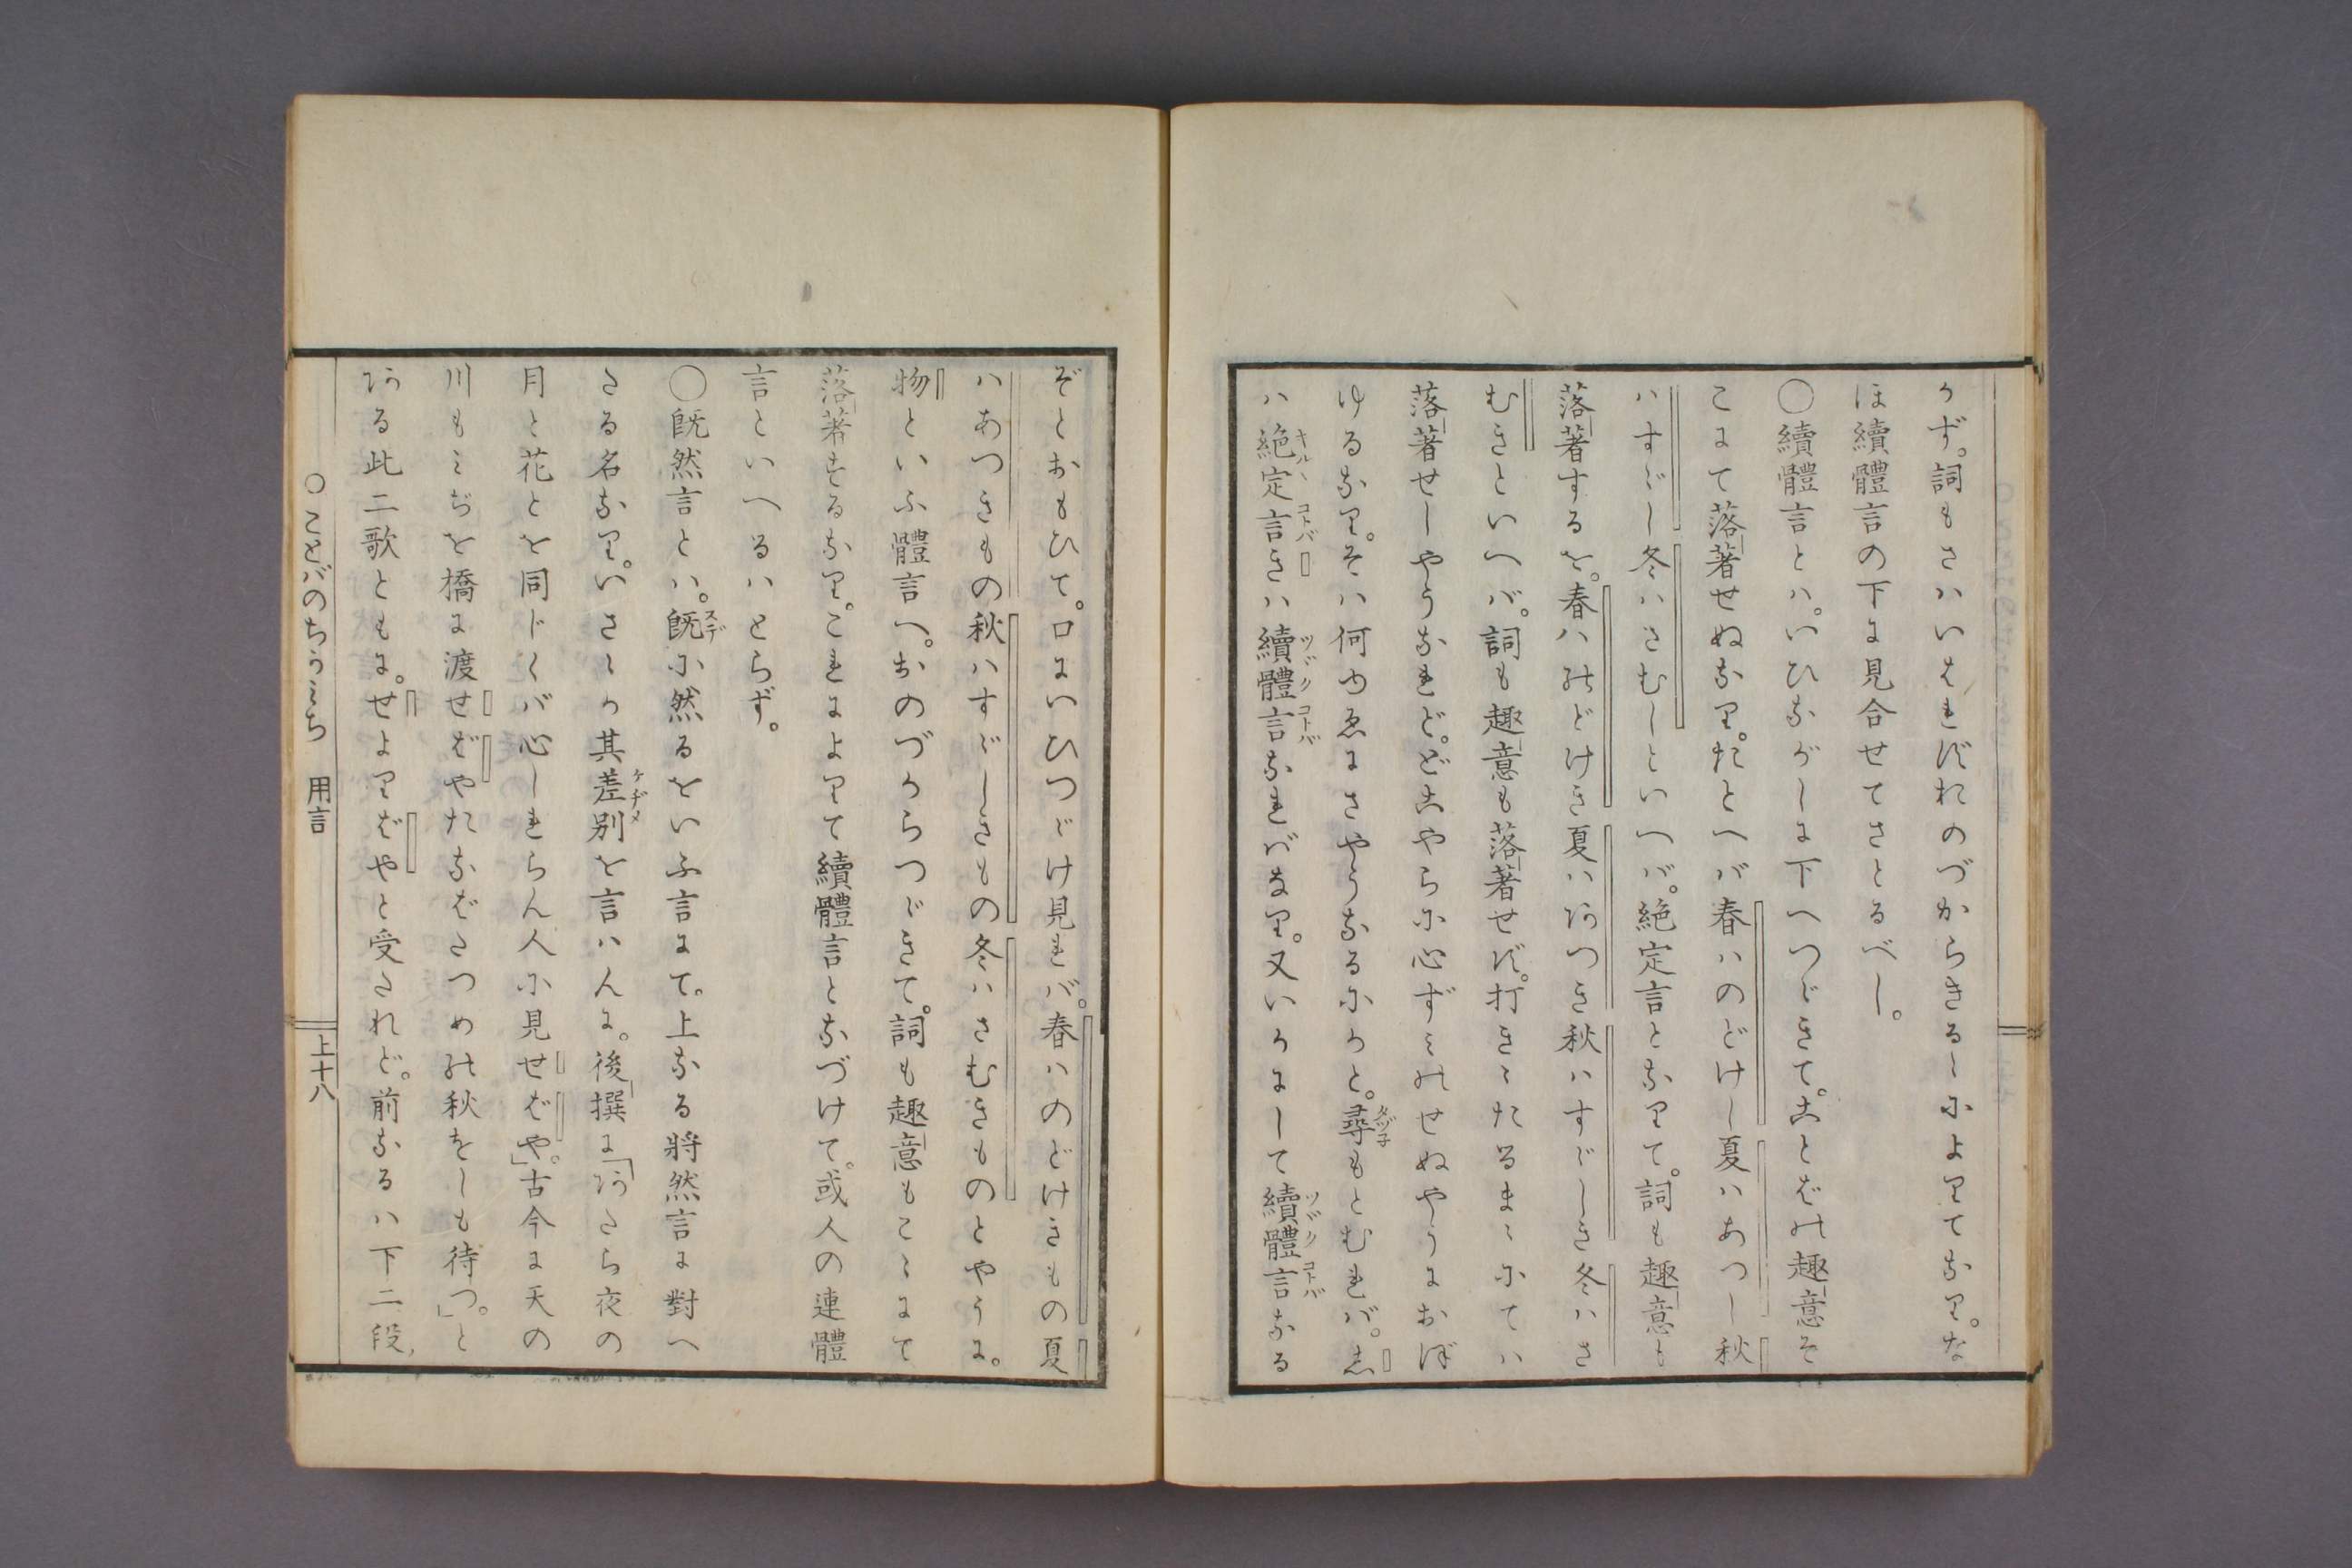 らず。詞もさはいはれずおのづからきるゝによりてなり。な
ほ續體言の下に見合せてさとるべし。
〇續體言とは。いひながしに下へつゞきて。ことばの趣意そ
こにて落著せぬなり。たとへば春はのどけし夏はあつし秋
はすゞし冬はさむしといへば。絶定言となりて。詞も趣意も
落著するを。春はのどけき夏はあつき秋はすゞしき冬はさ
むきといへば。詞も趣意も落著せず。打きゝたるまゝにては
落著せしやうなれど。どこやらに心ずみのせぬやうにおぼ
ゆるなり。そは何ゆゑにさやうなるにかと。尋もとむれば。し
は絶定言きは續體言なればなり。又いかにして續體言なる
ぞとおもひて。口にいひつゞけ見れば。春はのどけきもの夏
はあつきもの秋はすゞしきもの冬はさむきものとやうに。
物といふ體言へ。おのづからつゞきて。詞も趣意もこゝにて
落著するなり。これによりて續體言となづけて。或人の連體
言といへるはとらず。
〇既然言とは。既に然るをいふ言にて。上なる將然言に對へ
たる名なり。いさゝか其差別を言はんに。後撰に「あたら夜の
月と花とを同じくば心しれらん人に見せばや」。古今に天の
川もみぢを橋に渡せばやたなばたつめの秋をしも待つ」。と
ある此二歌ともに。せよりばやと受たれど。前なるは下二段、
〇ことばのちかみち 用言 上十八